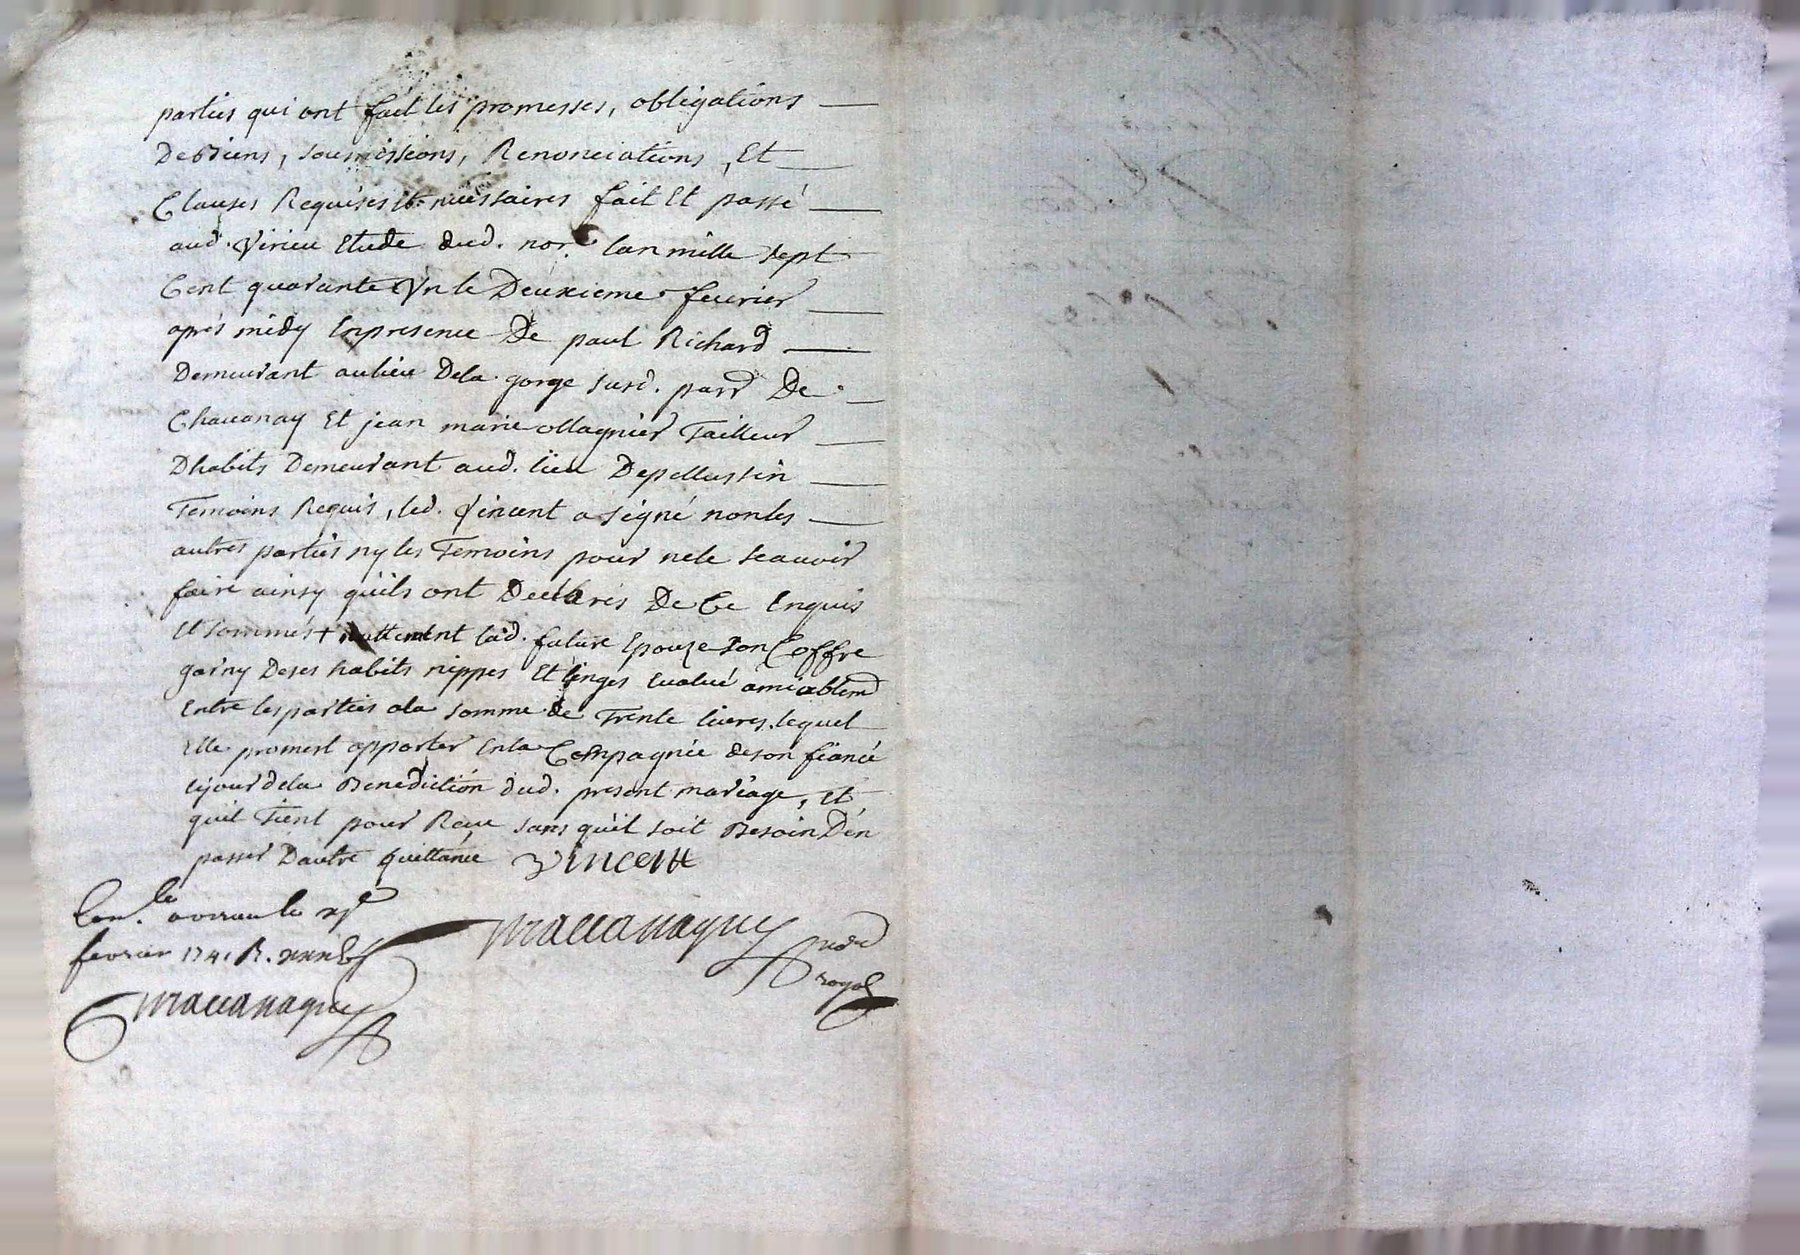 parties qui ont fait les promesses, obligations
De biens, soumissions, Renonciations, Et
Clauses Requises Et necessaires fait Et passé
aud. Virieu Etude dud. nore. lan mille sept
Cent quarante Vn le Deuxieme feurier
apres midy En presence De paul Richard
Demeurant au lieu Dela gorge susd. parr De
Chauanay Et jean marie ollagnier Tailleur
Dhabits Demeurant aud. lieu De pellussin
Temoins Requis, led. Vincent a signé non les
autres parties ny les Temoins pour ne le scauoir
faire ainsy quils ont Declarés De Ce Enquis
Et sommés + lad. future Epouze son Coffre
garny De ses habits nippes Et linges Eualué amiablemt
Entre les parties ala somme de Trente liures, lequel
Elle promest apporter En la Compagnie de son fiancé
le jour dela Benediction dud. present mariage, Et
quil Tient pour Receu sans quil soit Besoin Den
passer Dautre quittance Vincent
Con.le le
feurier 1741 R.
Maccanaguy
Maccanaguy
royal